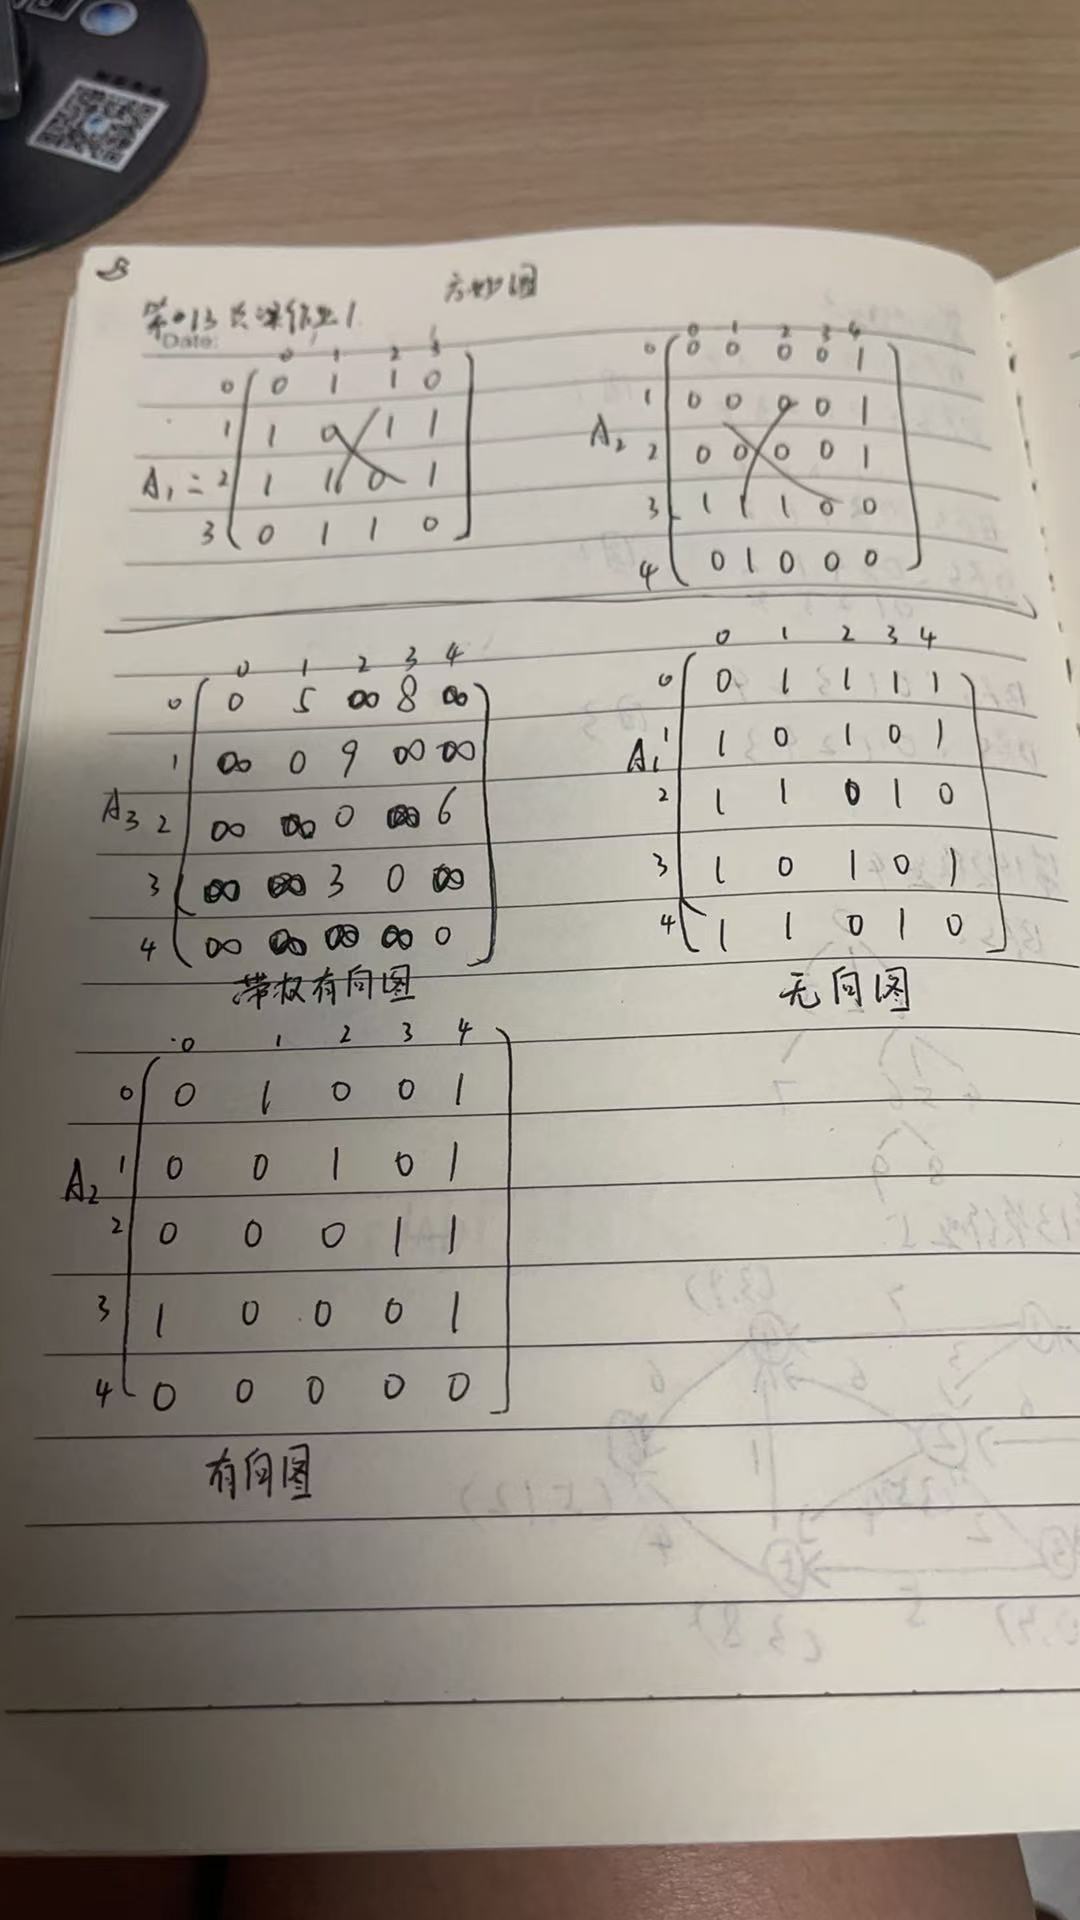 第013次课作业1
Date:
0 1 2 3
0 0 1 1 0
1 1 0 1 1
A₁ = 2 1 1 0 1
3 0 1 1 0
0 1 2 3 4
0 0 0 0 0 1
1 0 0 0 0 1
A₂ 2 0 0 0 0 1
3 1 1 1 0 0
4 0 1 0 0 0
0 1 2 3 4
0 0 5 ∞ 8 ∞
1 ∞ 0 9 ∞ ∞
A₃ 2 ∞ ∞ 0 ∞ 6
3 ∞ ∞ 3 0 ∞
4 ∞ ∞ ∞ ∞ 0
带权有向图
0 1 2 3 4
0 0 1 1 1 1
A₁ 1 1 0 1 0 1
2 1 1 0 1 0
3 1 0 1 0 1
4 1 1 0 1 0
无向图
0 1 2 3 4
0 0 1 0 0 1
A₂ 1 0 0 1 0 1
2 0 0 0 1 1
3 1 0 0 0 1
4 0 0 0 0 0
有向图